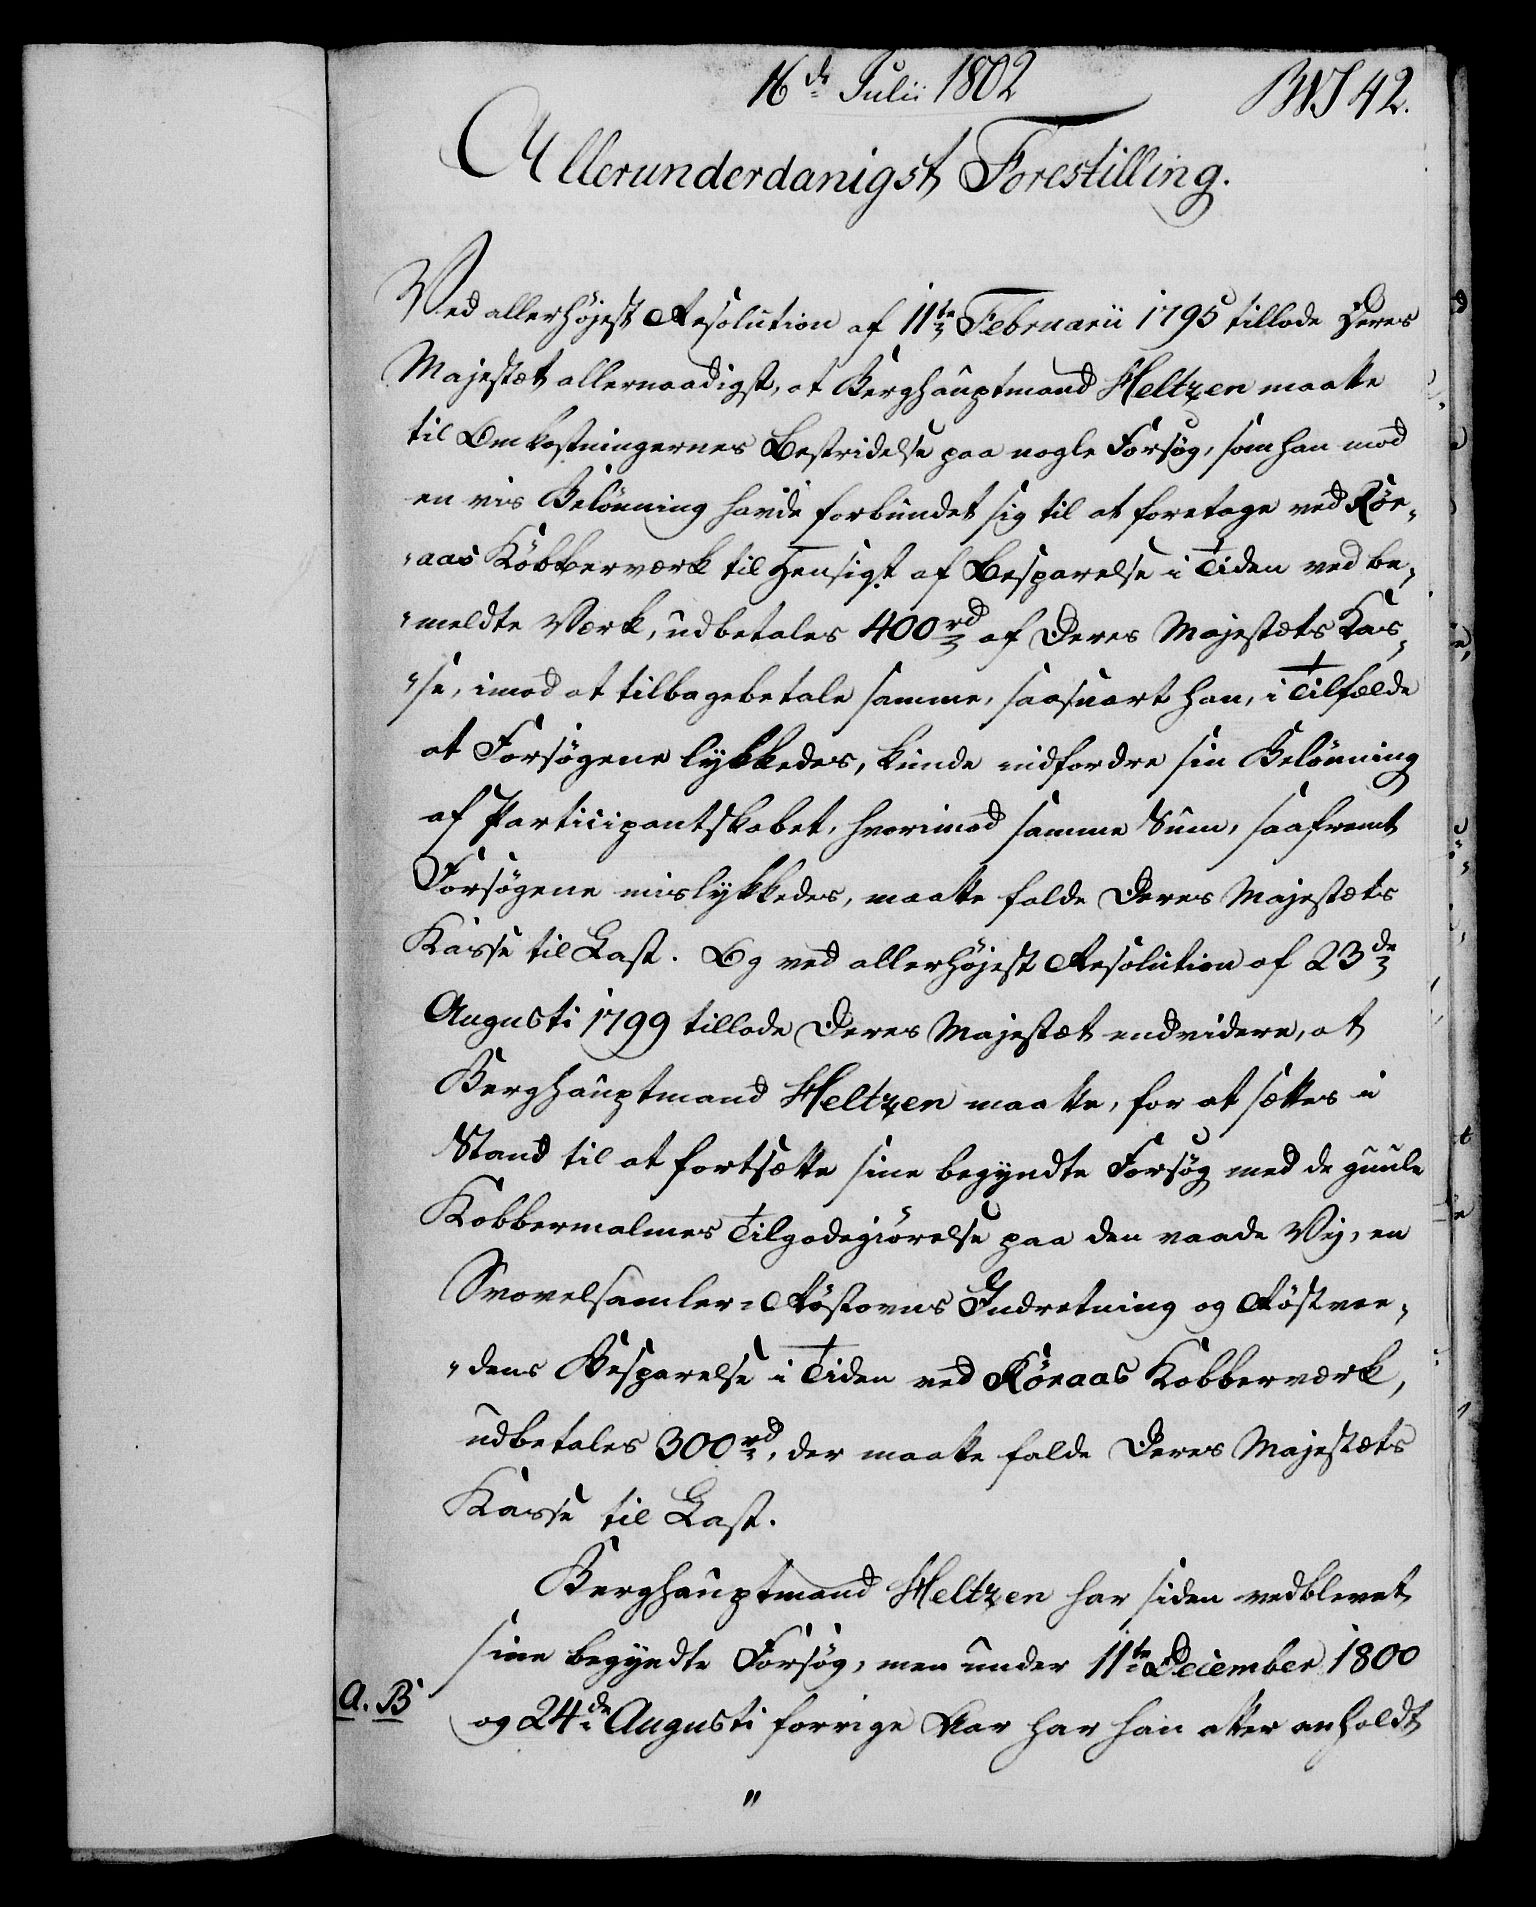 16de Julii 1802
42.
Allerunderdanigst Forestilling.
Ved allerhøjest Resolution af 11te Februarii 1795 tillode Deres
Majestæt allernaadigst, at Berghauptmand Heltzen maatte
til Omkostningernes Bestridelse paa nogle Forsøg, som han mod
en vis Belönning havde forbundet sig til at foretage ved Rør-
-aas Kobberværk til Hensigt af Besparelse i Tiden ved be-
-meldte Værk, udbetales 400rd af Deres Majestæts Kas-
-se, imod at tilbagebetale samme, saasnart han, i Tilfælde
at Forsøgene lykkedes, kunde indfordre sin Belönning
af Participantskabet, hvorimod samme Sum, saafremt
Forsøgene mislykkedes, maatte falde Deres Majestæts
Kasse til Last. Og ved allerhøjest Resolution af 23de
Augusti 1799 tillode Deres Majestæt endvidere, at
Berghauptmand Heltzen maatte, for at sættes i
Stand til at fortsætte sine begyndte Forsøg med de guule
Kobbermalmes Tilgodegiørelse paa den vaade Vej, en
Svovelsamler-Røstovns Indretning og Røstvee-
-dens Besparelse i Tiden ved Røraas Kobberværk,
udbetales 300rd, der maatte falde Deres Majestæts
Kasse til Last.
Berghauptmand Heltzen har siden vedblevet
sine begyndte Forsøg, men under 11te December 1800
A. B
og 24de Augusti forrige Aar har han atter anholdt
"